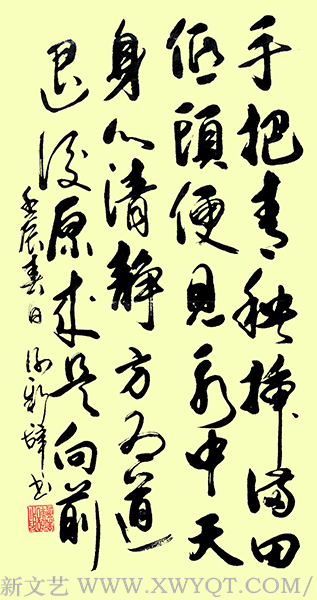 手把青秧插满田
低頭便見水中天
身心清静方为道
退後原来是向前
壬辰春日 书
新文艺 WWW.XWYQT.COM/